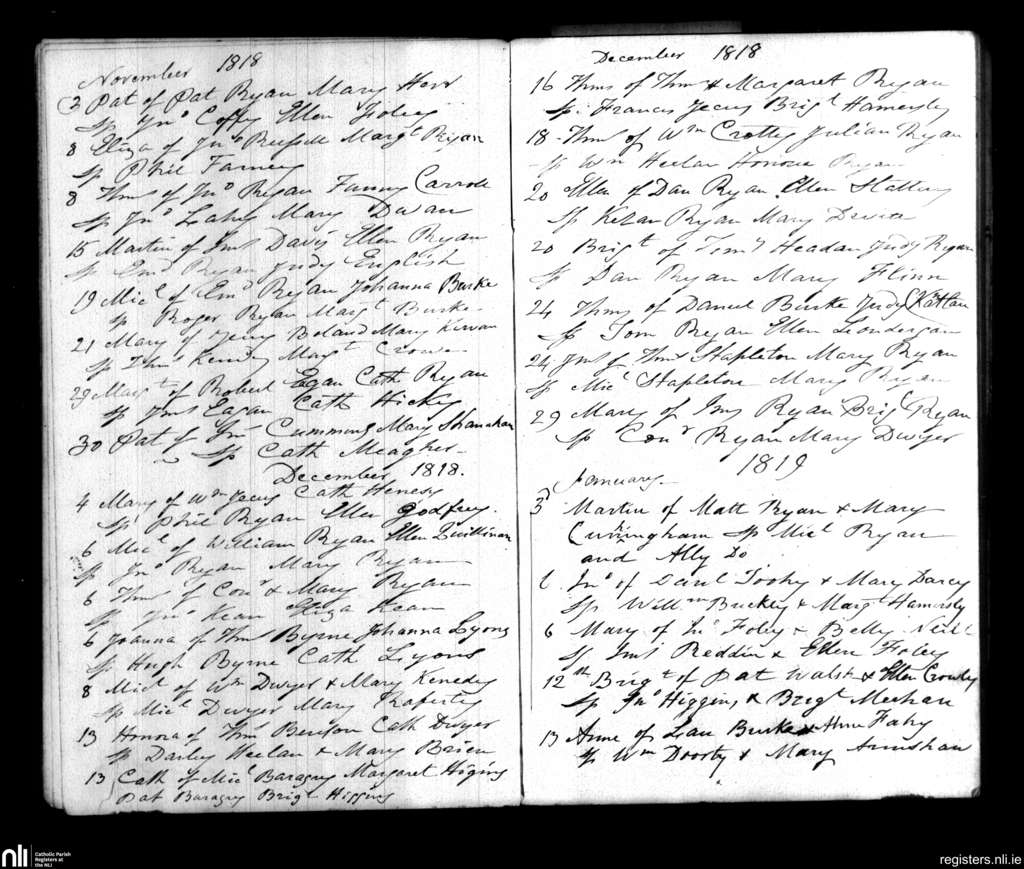 November 1818
2 Pat of Pat Ryan Mary Herr
Sp Jno Coffey Ellen Foley
8 Eliza of Jno Russell Margt Ryan
Sp Phil Farney
8 Thms of Jno Ryan Fanny Carroll
Sp Jno Lahy Mary Dwan
15 Martin of Jms Davis Ellen Ryan
Sp Emd Ryan Judy English
19 Micl of Emd Ryan Johanna Burke
Sp Roger Ryan Margt Burke
21 Mary of Jerry Boland Mary Kirwan
Sp Thms Kennedy Margt Crowe
29 Margt of Robert Egan Cath Ryan
Sp Jms Eagan Cath Hickey
30 Pat of Jno Cummins Mary Shanahan
Sp Cath Meagher
December 1818.
4 Mary of Wm Cath Henesy
Sp Phil Ryan Ellen Godfrey
6 Micl of William Ryan Ellen Quillinan
Sp Jno Ryan Mary Ryan
6 Thms of Conr & Mary Ryan
Sp Jno Kean Eliza Kean
6 Joanna of Thms Byrne Johanna Lyons
Sp Hugh Byrne Cath Lyons
8 Micl of Wm Dwyer & Mary Kenedy
Sp Micl Dwyer Mary Raferty
13 Honora of Thms Benson Cath Dwyer
Sp Darley Heelan & Mary Brien
13 Cath of Micl Baragry Margaret Higins
Pat Baragry Brigt Higgins
December 1818
16 Thms of Thms & Margaret Ryan
Sp: Francis Brigt Hamersly
18 Thms of Wm Crotty Julian Ryan
Sp Wm Heelan Honora Ryan
20 Ellen of Dan Ryan Ellen Slattery
Sp Ryan Mary
20 Brigt of Timy Headan Judy Ryan
Sp Dan Ryan Mary Flinn
24 Thms of Daniel Burke Judy
Sp Tom Ryan Ellen Londergan
24 Jms of Thms Stapleton Mary Ryan
Sp Micl Stapleton Mary Ryan
29 Mary of Jms Ryan Brigt Ryan
Sp Conr Ryan Mary Dwyer
1819
January
3 Martin of Matt Ryan & Mary
Cunningham Sp Micl Ryan
and Ally Do
Jno of Danl Toohy & Mary Darcy
Sp Willm Buckley & Margt Hamersly
6 Mary of Jno Foley & Betty Neill
Sp Jms Reddin & Ellen Foley
12th Brigt of Pat Walsh & Ellen Crowly
Sp Jno Higgins & Brigt Meehan
13 Anne of Dan Burke & Anne Fahy
Sp Wm Doorty & Mary
nli
Catholic Parish
Registers at
the NLI
registers.nli.ie